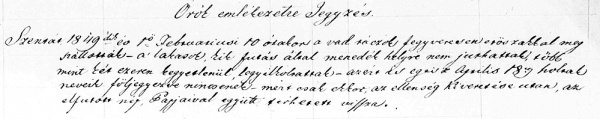 Örök emlékezetre Jegyzés.
Szentár 1849dik év 1ő Februariusi 10 órakor a vad ráczok fegyveresen erőszakkal meg
szállották – a lakosok, kik futás által menedék helyre nem juthattak, több
mint két ezeren kegyetlenül legyilkoltattak – azért kis egész Aprilis 18ig holtak
neveik följegyezve nincsenek – mert csak ekkor, az ellenség kiverettése után, az
elfutott nép, Papjaival együtt térhetett vissza.